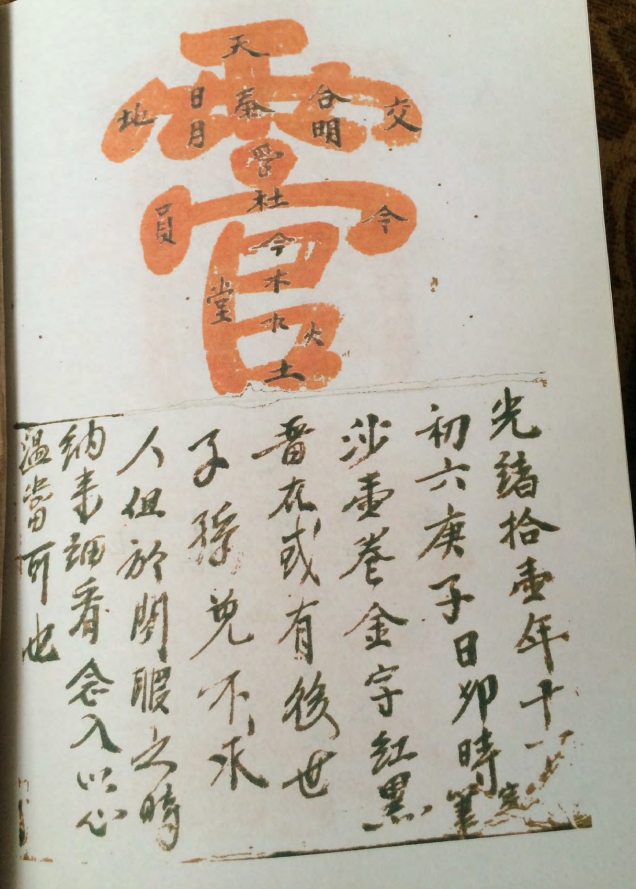 天
交
合明
泰
日月
地
杜
令
員
今
木
水
火
堂
土
光緒拾壹年十一
初六庚子日卯時筆
沙壹卷金字紅黑
番在或有後世
子孫免不求
人但於閑暇之時
納来細看念入以心
溫當可也